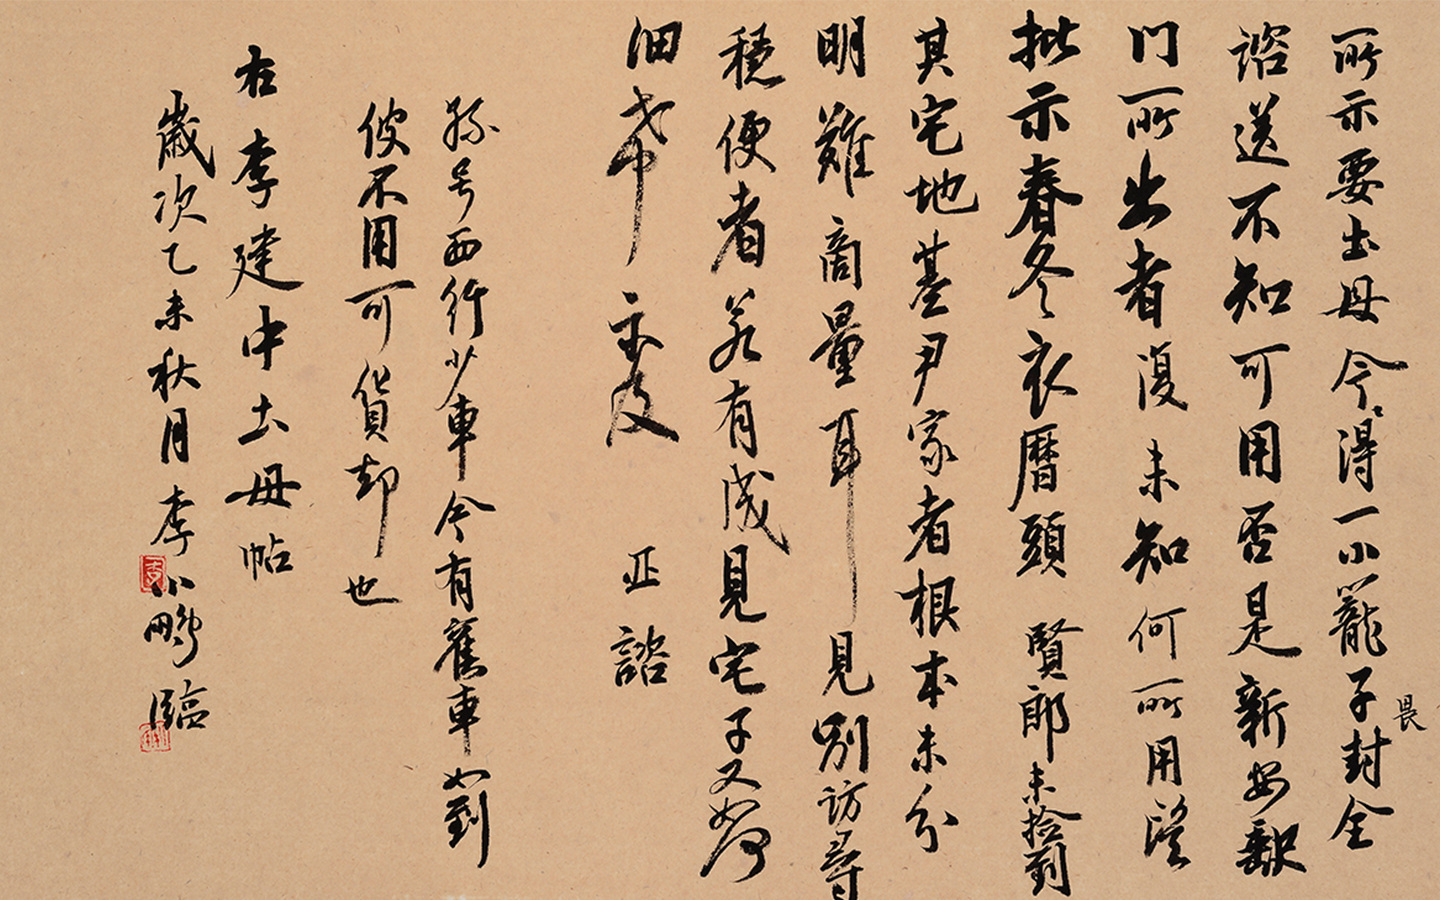 所示要土母今得一小籠子封全
畏
諮送不知可用否是新安缺
門所出者復未知何所用望
批示春冬衣曆頭賢郎未檢到
其宅地基尹家者根本未分
明難商量耳見別訪尋
穩便者若有成見宅子又如何
細希示及 諮
孫号西行少車今有舊車如到
彼不用可貨却也
右李建中土母帖
歲次乙未秋月李小鵬臨